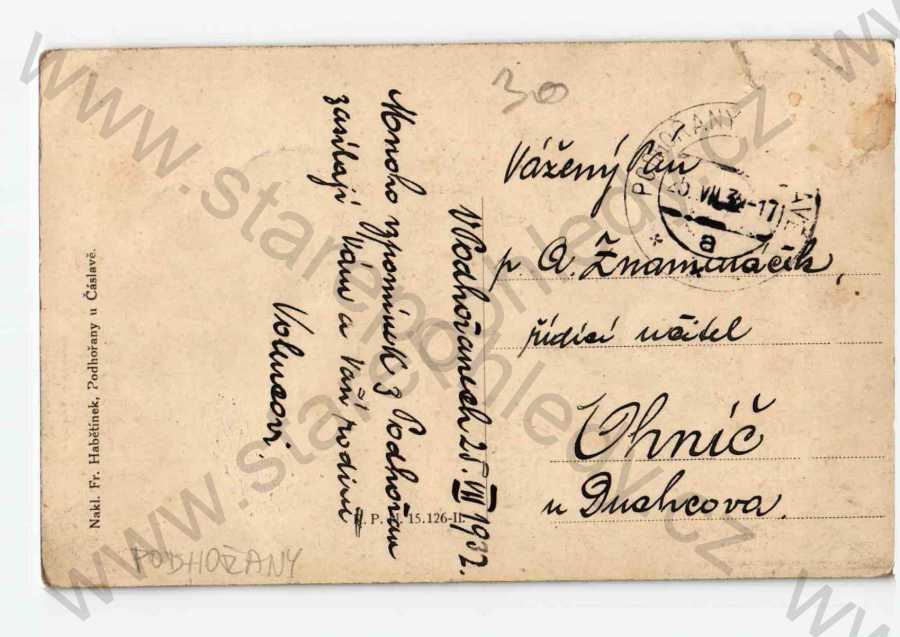 30
V Podhořanech 25. VII 1932.
Mnoho vzpomínek z Podhořan
zasílají Vám a Vaší rodině
Volncovi.
Vážený Pan
p. A. Znamenáček,
řídící učitel
Ohníč
u Duchcova.
PODHOŘANY
25. VII. 32 -17
a
Nakl. Fr. Habětínek, Podhořany u Čáslavě.
P. 15.126-II.
PODHOŘANY
www.starepohledy.cz